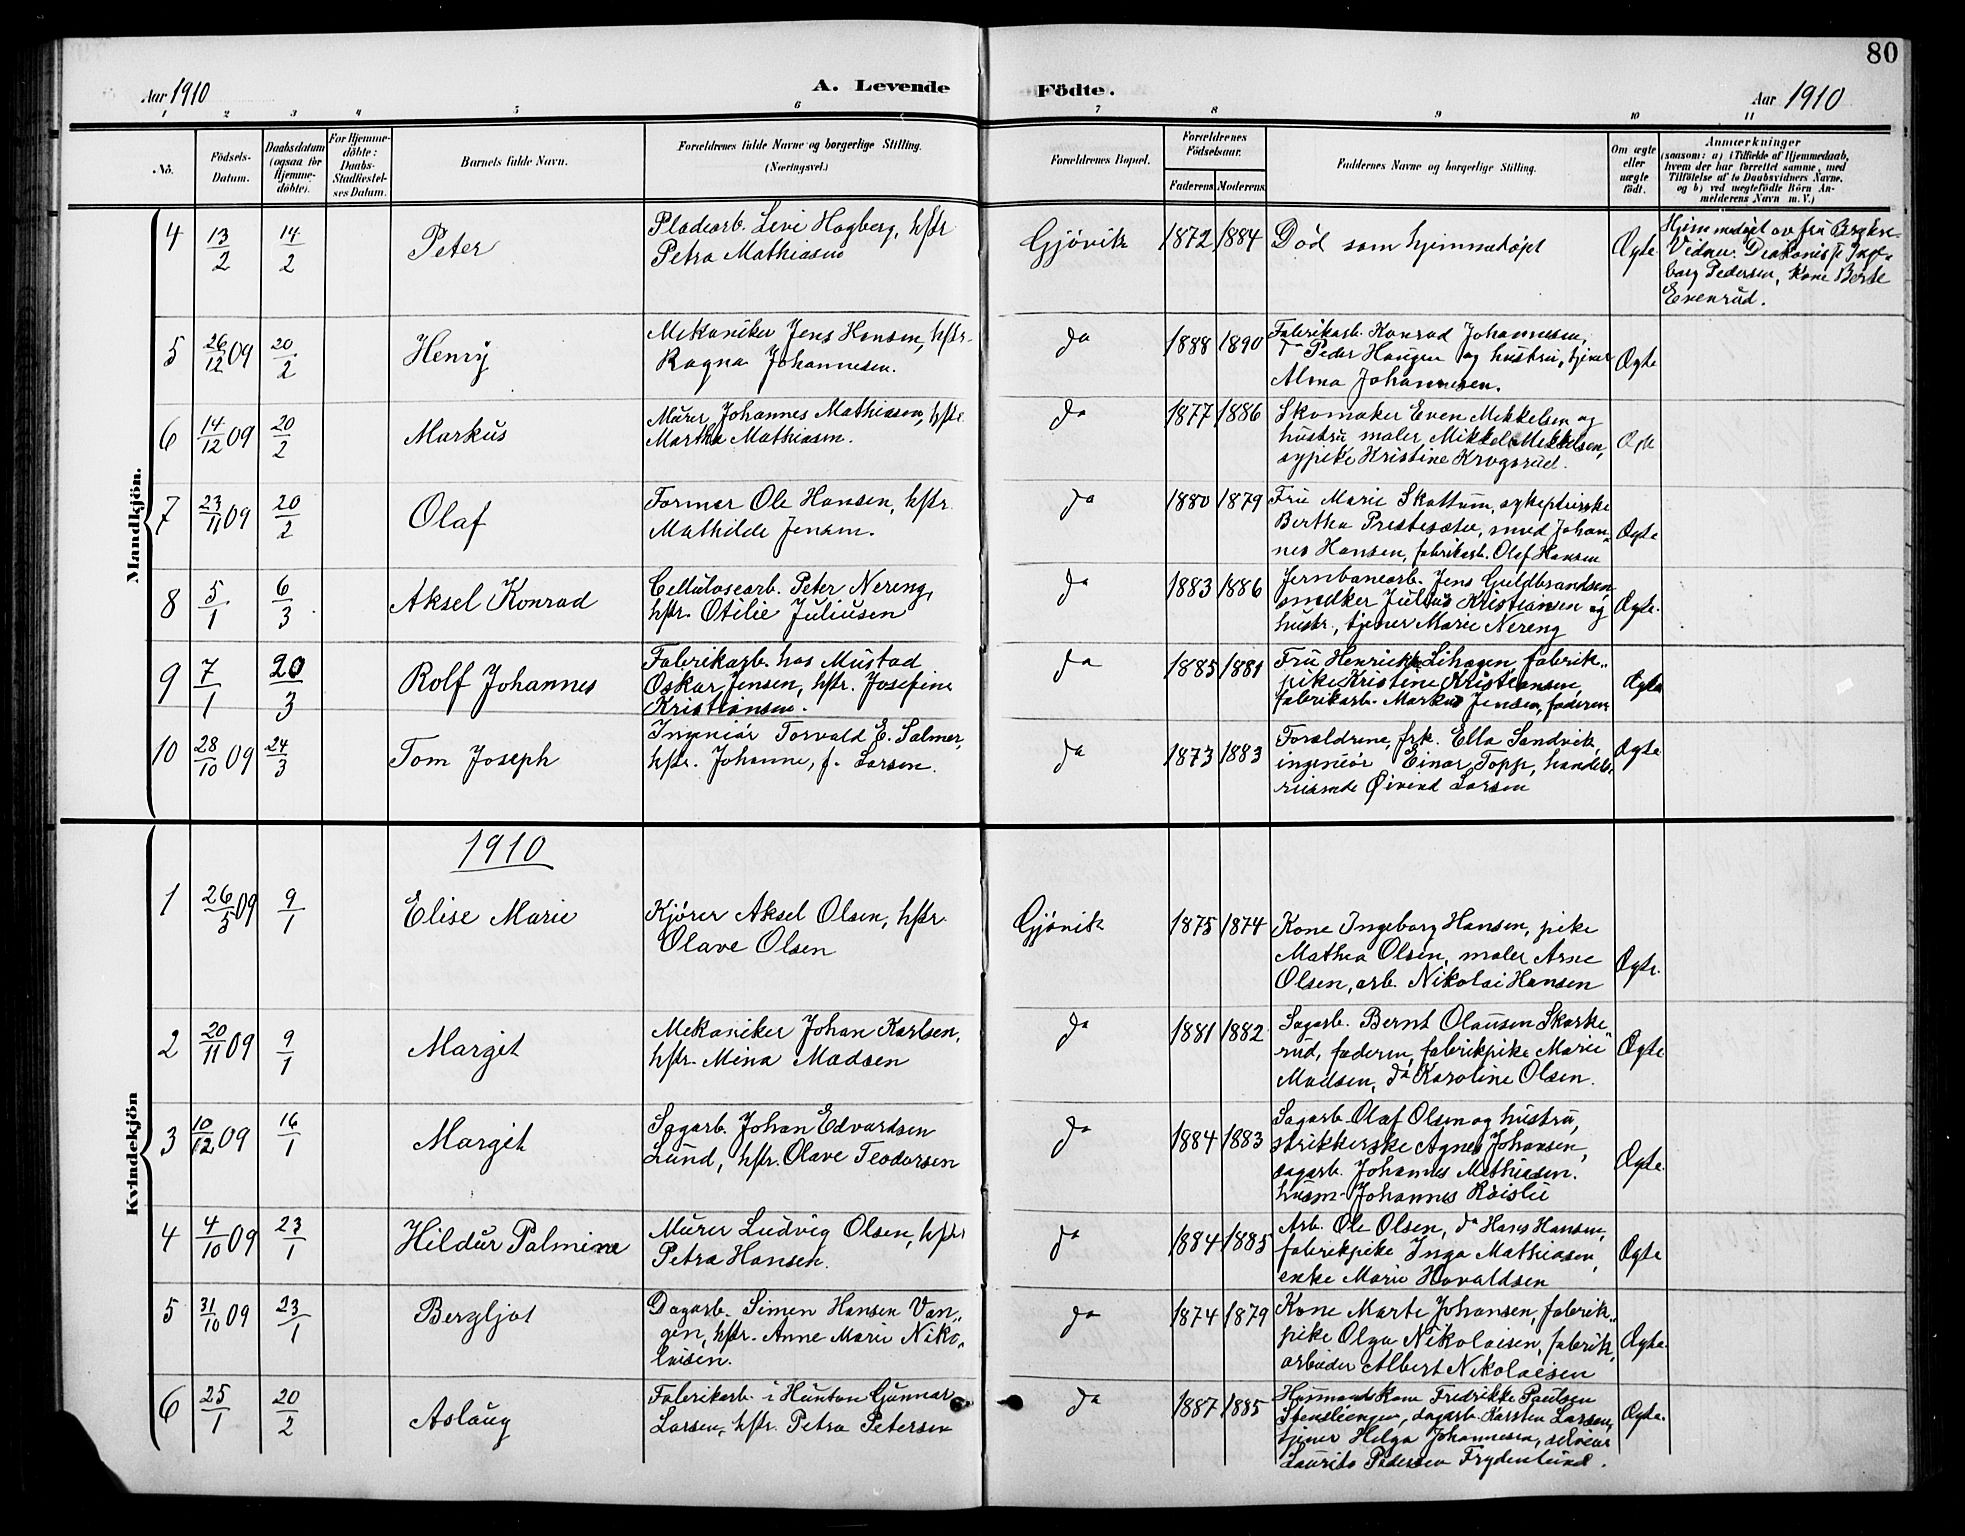 80
Aar 1910
A. Levende Födte.
Aar 1910
1 2 3 4 5 6 7 8 9 10 11
No.
Födsels-
Datum.
Daabsdatum
(ogsaa for
Hjemme-
döbte).
For Hjemme-
döbte:
Daabs-
Stadfæstel-
ses Datum.
Barnets fulde Navn.
Forældrenes fulde Navne og borgerlige Stilling.
(Næringsvei.)
Forældrenes Bopæl.
Forældrenes
Födselsaar.
Faderens Moderens
Faddernes Navne og borgerlige Stilling.
Om ægte
eller
uægte
födt.
Anmærkninger
(saasom: a) i Tilfælde af Hjemmedaab,
hvem der har forrettet samme, med
Tilföielse af to Daabsvidners Navne,
og b) ved uægtefödte Börn An-
melderens Navn m. V.)
Mandkjön.
4 13/2 14/2 Peter
Pladearb. Levi Hagberg, hstr
Petra Mathiasen
Gjövik 1872 1884 Död som hjemmedöpt Ægte
Hjemmedöpt av fru
Vidner: Diakonisse Inge-
borg Pedersen, kone Berte
Evenrud.
5 26/12 09 20/2 Henry
Mekaniker Jens Hansen, hstr.
Ragna Johannesen.
da 1888 1890
Fabrikarb. Konrad Johannesen,
da Peder Haugen og hustru, tjener
Alma Johannesen.
Ægte
6 14/12 09 20/2 Markus
Murer Johannes Mathiasen, hstr.
Martha Mathiasen.
da 1877 1886
Skomaker Even Mikkelsen og
hustru, maler Mikkel Mikkelsen,
sypike Kristine Krogsrud.
Ægte
7 23/11 09 20/2 Olaf
Former Ole Hansen, hstr.
Mathilde Jensen.
da 1880 1879
Fru Marie Skattum, sykepleierske
Bertha Prestesæter, smed Johan-
nes Hansen, fabrikarb. Olaf Hansen
Ægte
8 5/1 6/3 Aksel Konrad
Cellulosearb. Peter Nereng,
hstr. Otilie Juliusen
da 1883 1886
Jernbanearb. Jens Guldbrandsen
snedker Julius Kristiansen og
hustr., tjener Marie Nereng
Ægte.
9 7/1 20/3 Rolf Johannes
Fabrikarb. hos Mustad
Oskar Jensen, hstr. Josefine
Kristiansen.
da 1885 1881
Fru Henrikke Lihagen, fabrik-
pike Kristine Kristiansen,
fabrikarb. Markus Jensen, faderen
Ægte
10 28/10 09 24/3 Tom Joseph
Ingeniör Torvald E. Salmer,
hstr. Johanne, f. Larsen.
da 1873 1883
Forældrene, frk. Ella Sandvik,
ingeniör Einar Topp, handels-
reisende Öivind Larsen
Ægte
Kvindekjön
1910
1 26/5 09 9/1 Elise Marie
Kjörer Aksel Olsen, hstr.
Olave Olsen
Gjövik 1875 1874
Kone Ingeborg Hansen, pike
Mathea Olsen, maler Arne
Olsen, arb. Nikolai Hansen
Ægte.
2 20/11 09 9/1 Margit
Mekaniker Johan Karlsen,
hstr. Mina Madsen
da 1881 1882
Sagarb. Bernt Olausen Skarke-
rud, faderen, fabrikpike Marie
Madsen, da Karoline Olsen.
Ægte
3 10/12 09 16/1 Margit
Sagarb. Johan Edvardsen
Lund, hstr. Olave Teodorsen
da 1884 1883
Sagarb. Olaf Olsen og hustru,
strikkerske Agnes Johansen,
sagarb. Johannes Mathiasen.
husm. Johannes
Ægte.
4 4/10 09 23/1 Hildur Palmine
Murer Ludvig Olsen, hstr
Petra Hansen.
da 1884 1885
Arb. Ole Olsen, da Hans Hansen,
fabrikpike Inga Mathiasen,
enke Marie Havaldsen
Ægte
5 31/10 09 23/1 Bergljot
Dagarb. Simen Hansen Van-
gen, hstr. Anne Marie Niko-
laisen.
da 1874 1879
Kone Marte Johansen, fabrik-
pike Olga Nikolaisen, fabrik-
arbeider Albert Nikolaisen
Ægte.
6 25/1 20/2 Aslaug
Fabrikarb. i Hunton Gunnar
Larsen, hstr. Petra Petersen
da 1887 1885
Husmandskone Fredrikke Paulsen
dagarb. Karsten Larsen,
tjener Helga Johannesen,
Laurits Pedersen Frydenlund.
Ægte.